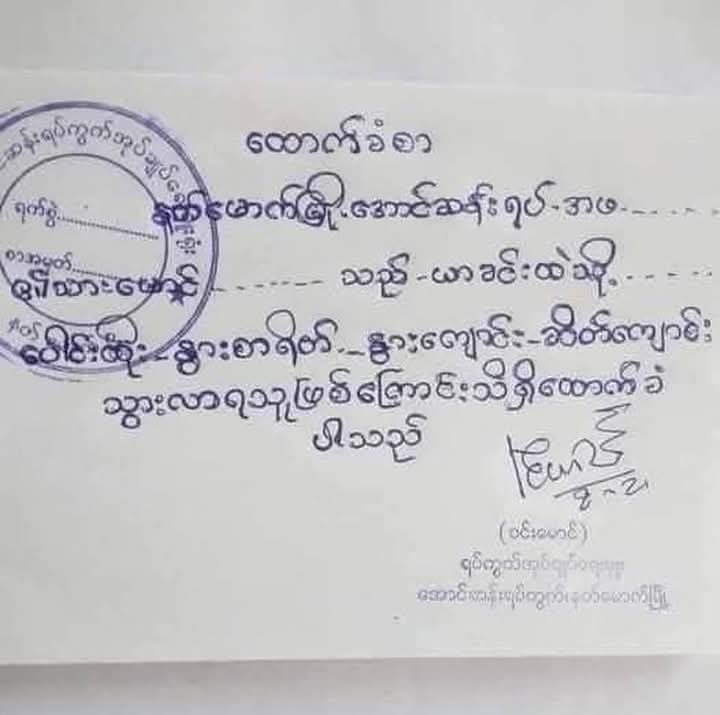 ထောက်ခံစာ
နတ်မောက်မြို့.အောင်ဆန်းရပ်-အဖ.......
ဦး/သားမောင် .......... သည် -ယာခင်းထဲသို့......
ပေါင်းထိုး-နွားစာရိတ်-နွားကျောင်း-ဆိတ်ကျောင်း
သွားလာရသူဖြစ်ကြောင်းသိရှိထောက်ခံ
ပါသည်
(ဝင်းမောင်)
ရပ်ကွက်အုပ်ချုပ်ရေးမှူး
အောင်ဆန်းရပ်ကွက်၊နတ်မောက်မြို့
ဆန်းရပ်ကွက်အုပ်ချုပ်
ရက်စွဲ..........
စာအမှတ်..........